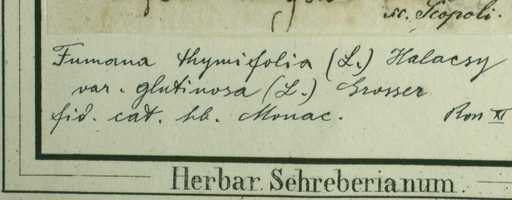 M. Scopoli.
Fumana thymifolia (L.) Halacsy
var. glutinosa (L.) Grosser
fid. cat. hb. Monac. Ros XI
Herbar. Schreberianum.